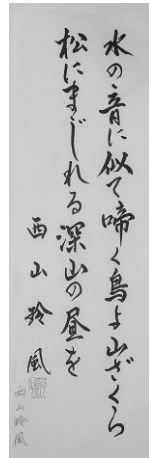 水の音に似て啼く鳥よ山ざくら
松にまじれる深山の昼を
西山玲風
西山玲風